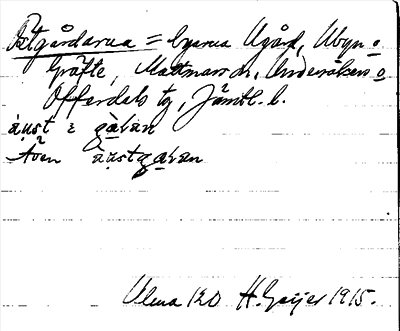 Östgårdarna = byarna Ugård, Ubyn o
Gräfte, Mattmars sn, Undersåkers o
Offerdals tg, Jämtl. l.
Även
Ulma 120 H. Geijer 1915.